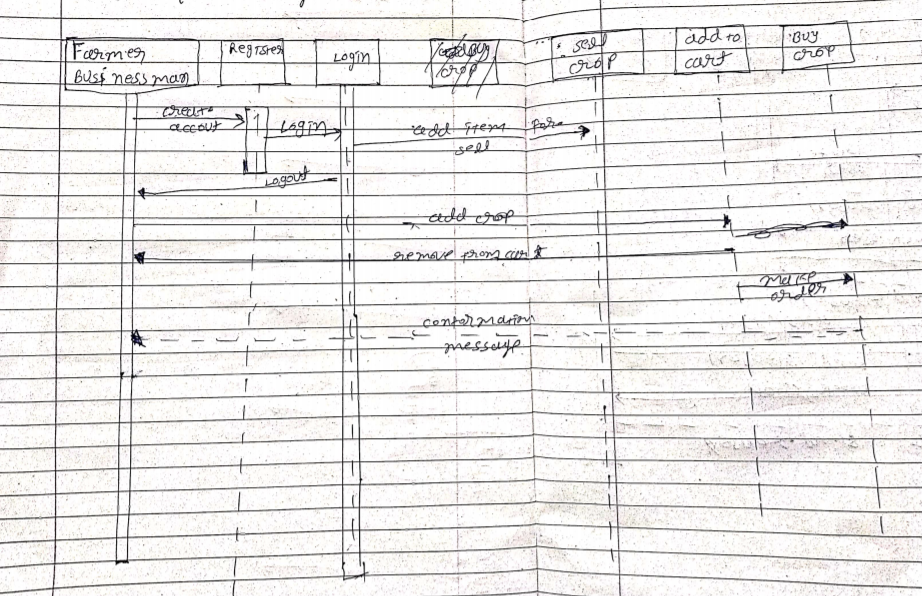 Farmer
Bussinessman
Register
Login
crop
sell
crop
add to
cart
Buy
crop
create
accout
Login
add item for
sell
Logout
add crop
remove from cart
make
order
confermation
message